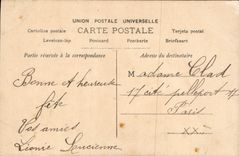 UNION POSTALE UNIVERSELLE
CARTE POSTALE
Cartolina postale
Tarjeta postal
Levelezo-lap
Postcard
Postkarte
Briefkaart
Partie réservée à la correspondance
Adresse du destinataire
Bonne et heureuse
fête
Vos amies
Léonie Lucienne
Madame Clad
17 cité pelleport 17
Paris
XX